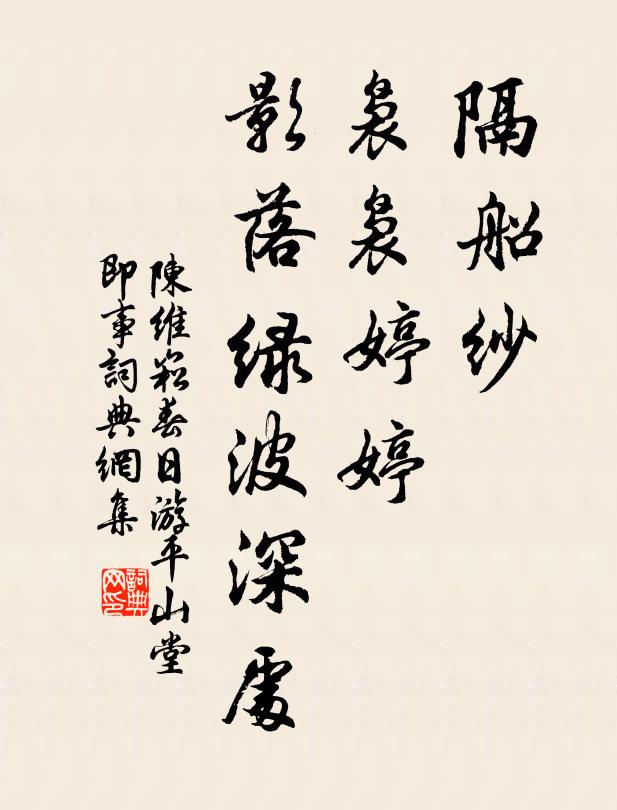 隔船紗
裊裊婷婷
影落緑波深處
陳維崧春日游平山堂
即事詞典網集
詞典
网印